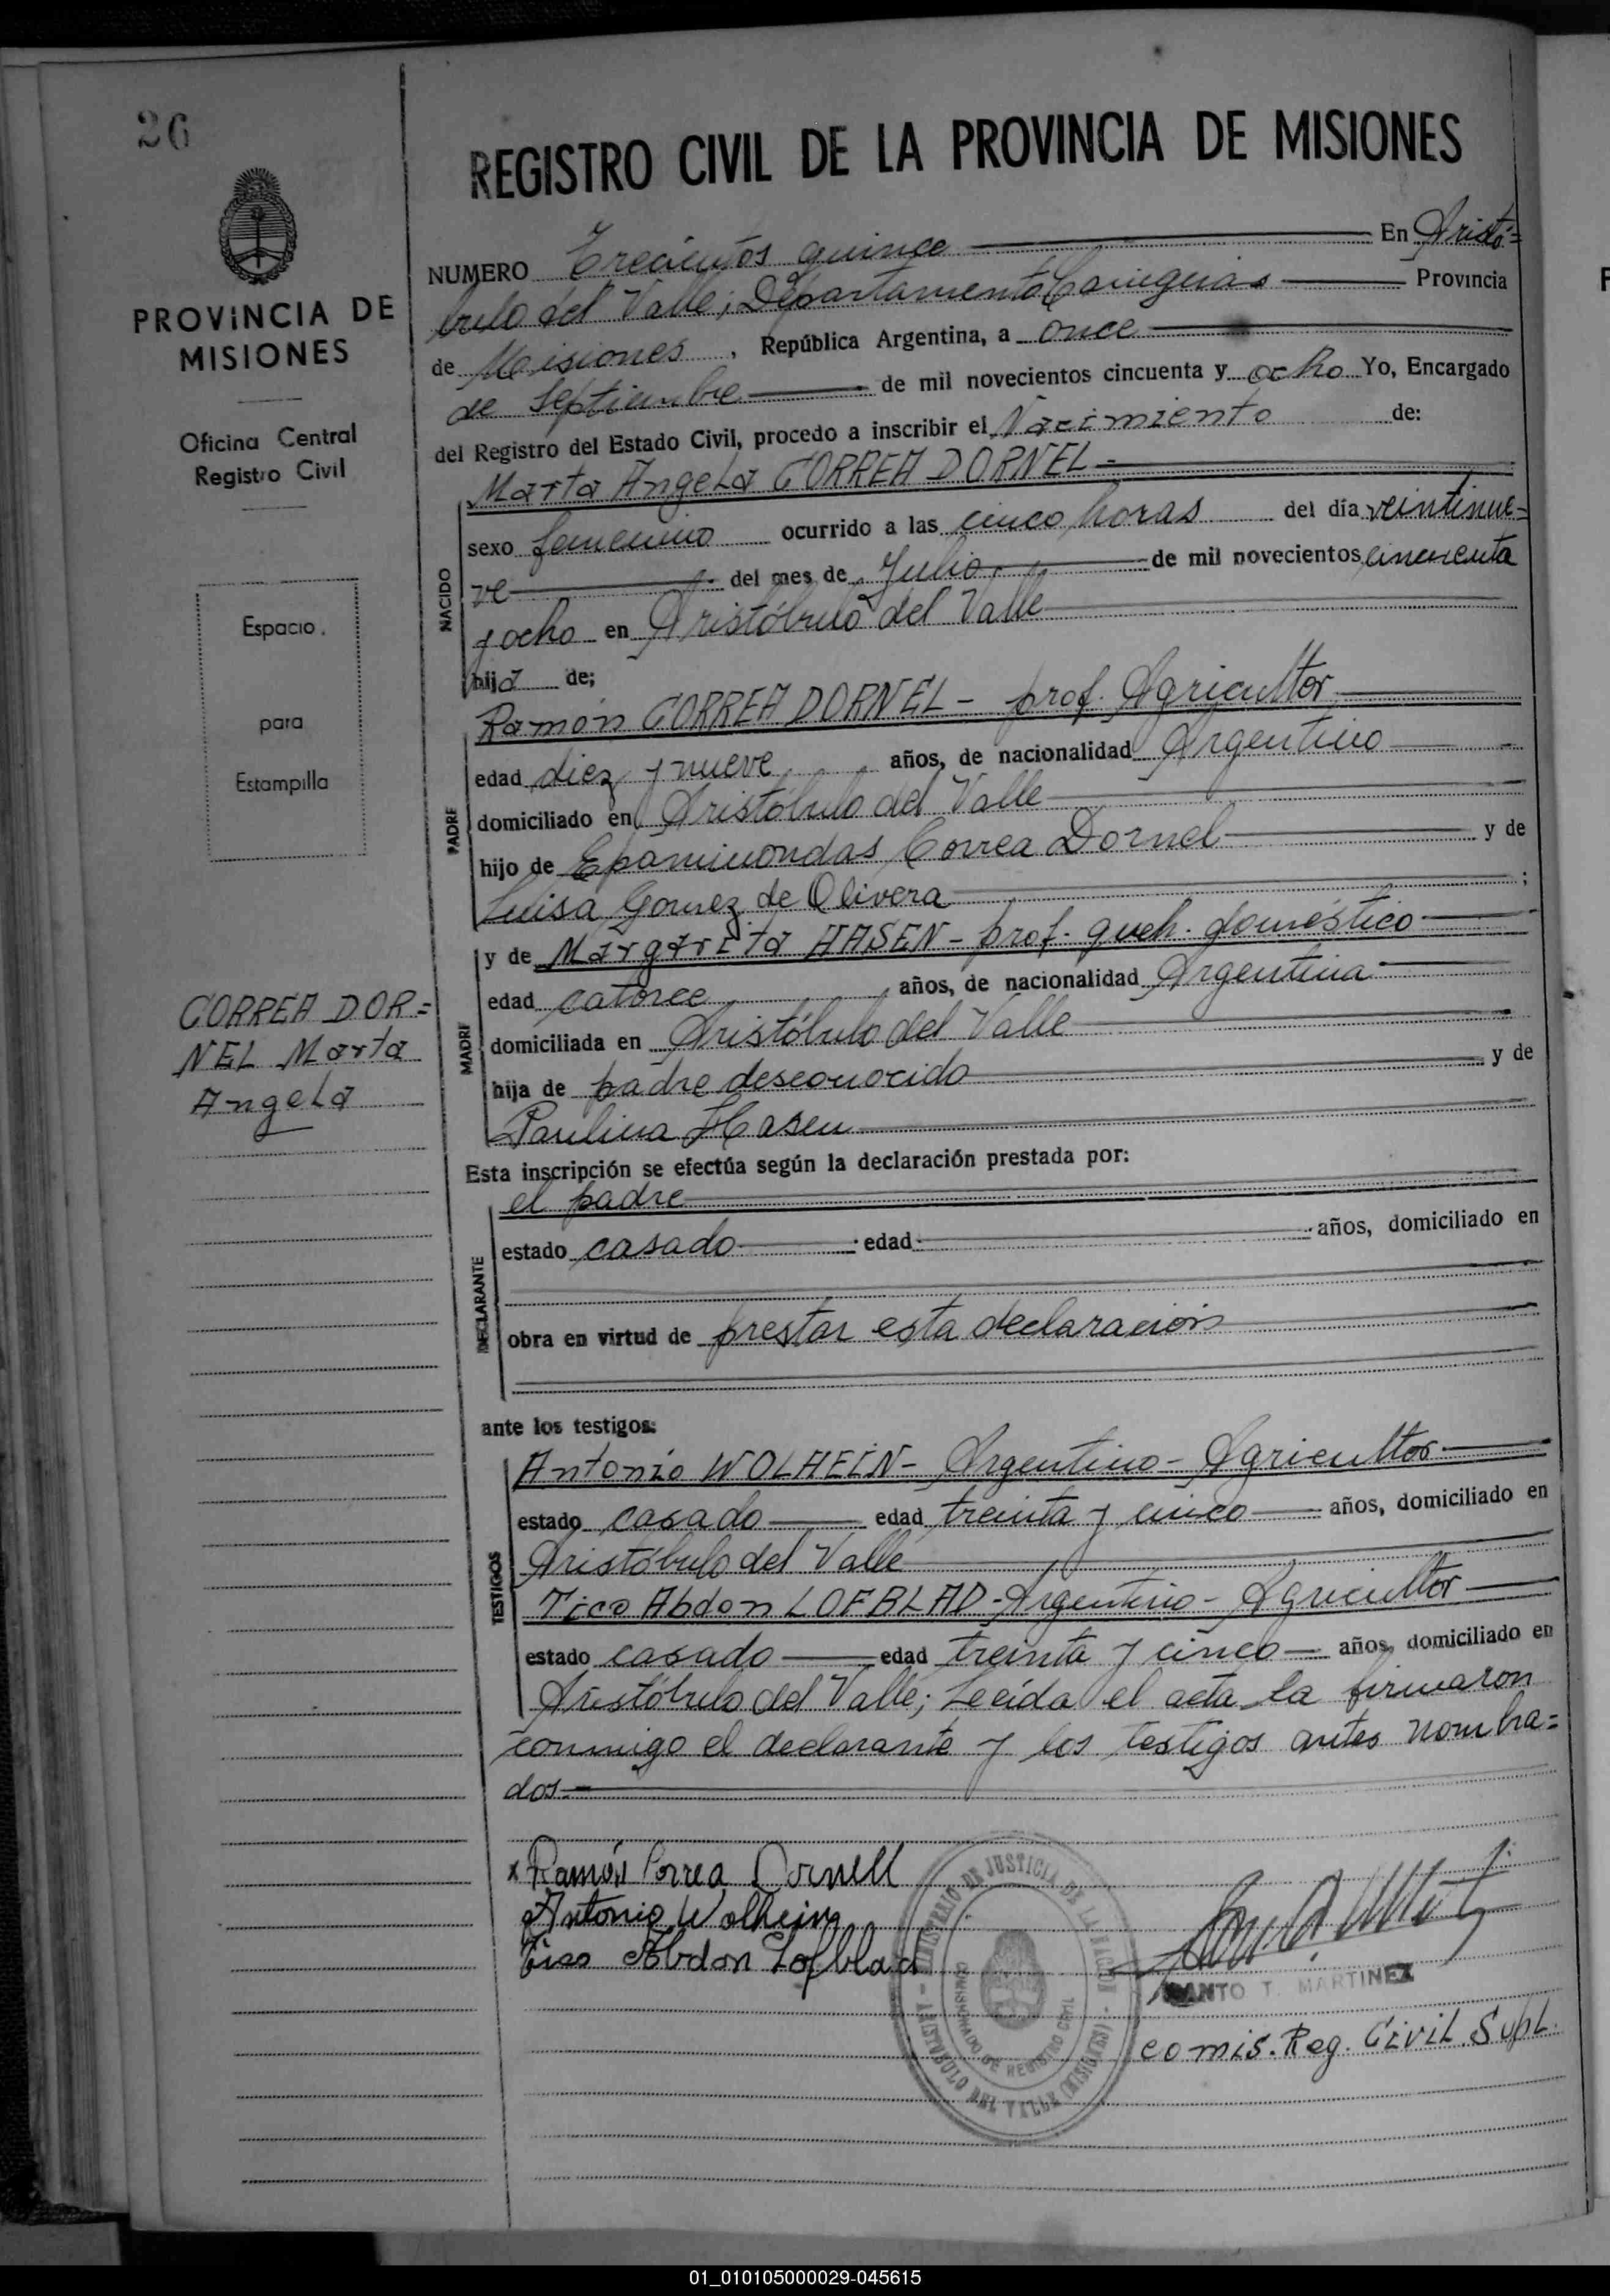 26
PROVINCIA DE
MISIONES
Oficina Central
Registro Civil
Espacio
para
Estampilla
CORREA DOR=
NEL Marta
Angela
REGISTRO CIVIL DE LA PROVINCIA DE MISIONES
NUMERO Trecientos quince En Aristó=
bulo del Valle, Departamento Cainguás Provincia
de Misiones, República Argentina, a once
de Septiembre de mil novecientos cincuenta y ocho Yo, Encargado
del Registro del Estado Civil, procedo a inscribir el Nacimiento de:
NACIDO
Marta Angela CORREA DORNEL -
sexo femenino ocurrido a las cinco horas del día veintinue=
ve del mes de Julio de mil novecientos cincuenta
y ocho en Aristóbulo del Valle
hija de;
PADRE
Ramón CORREA DORNEL - prof. Agricultor
edad diez y nueve años, de nacionalidad Argentino
domiciliado en Aristóbulo del Valle
hijo de Epaminondas Correa Dornel y de
Luisa Gomez de Olivera ;
MADRE
y de Margarita HASEN - prof. queh. doméstico
edad catorce años, de nacionalidad Argentina
domiciliada en Aristóbulo del Valle
hija de padre desconocido y de
Paulina Hasen
Esta inscripción se efectúa según la declaración prestada por:
DECLARANTE
el padre
estado casado edad años, domiciliado en
obra en virtud de prestar esta declaración
ante los testigos:
TESTIGOS
Antonio WOLHEIN - Argentino - Agricultor
estado casado edad treinta y cinco años, domiciliado en
Aristóbulo del Valle
Tico Abdon LOFBLAD - Argentino - Agricultor
estado casado edad treinta y cinco años, domiciliado en
Aristóbulo del Valle; Leída el acta la firmaron
conmigo el declarante y los testigos antes nombra=
dos.-
x Ramón Correa Dornell
Antonio Wolhein
Tico Abdon Lofblad
MINISTERIO DE JUSTICIA DE LA NACION
REGISTRO CIVIL
ARISTOBULO DEL VALLE (MISIONES)
SANTO T. MARTINEZ
comis. Reg. Civil Supl.
01_010105000029-045615